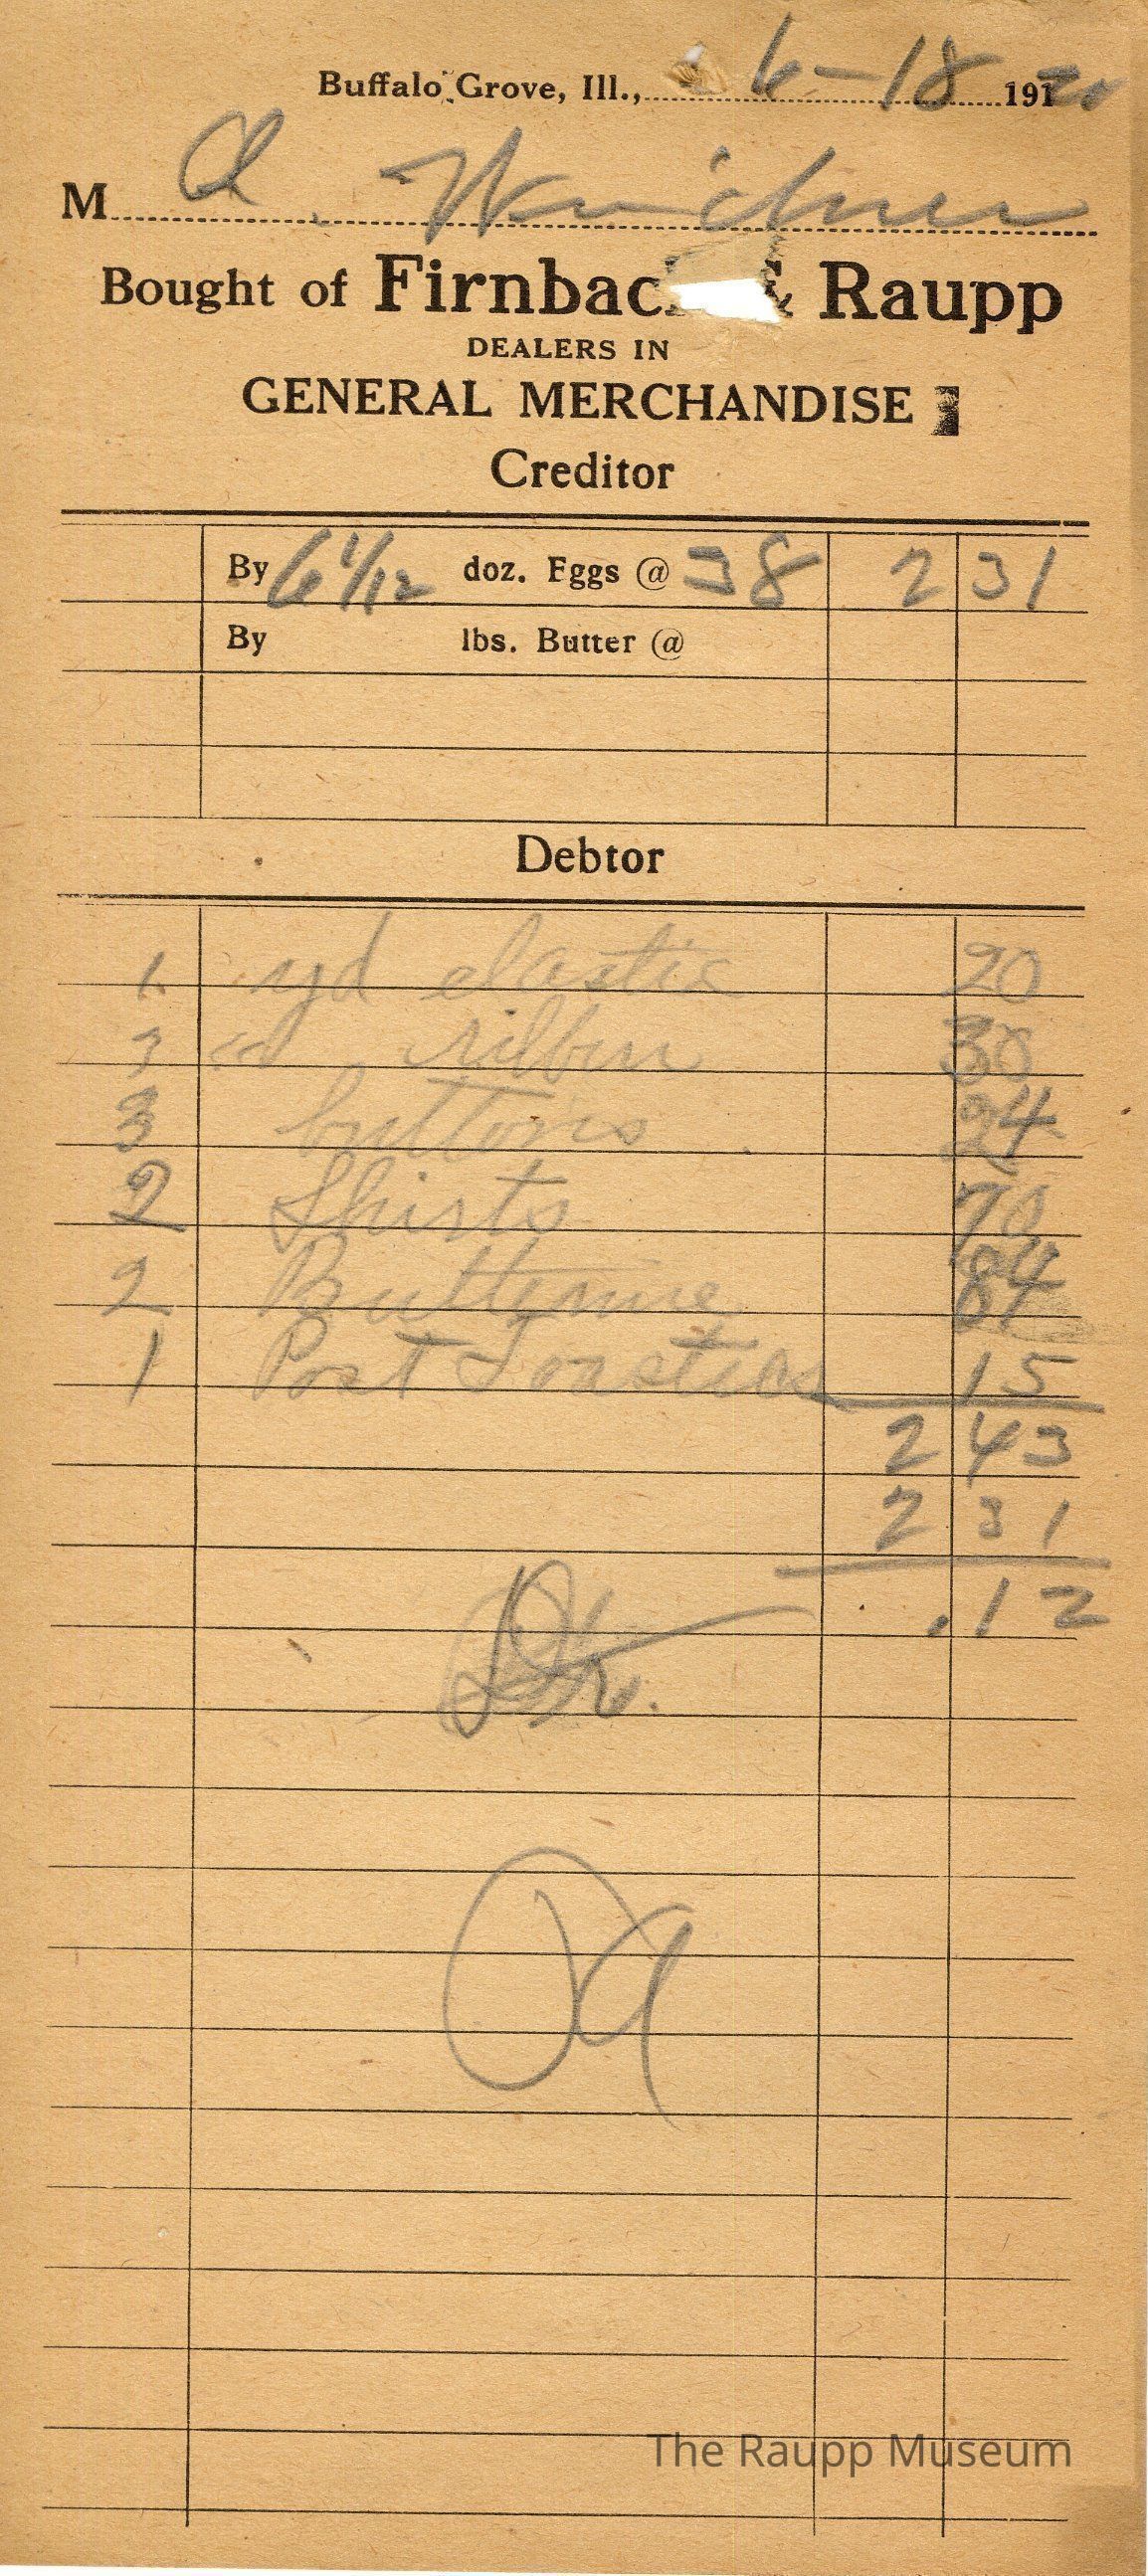 Buffalo Grove, Ill., 6-18 1920
M A.
Bought of Firnbac & Raupp
DEALERS IN
GENERAL MERCHANDISE
Creditor
By 6 1/12 doz. Eggs @ 38 2 31
By lbs. Butter @
Debtor
1 yd elastic 20
3 " ribbin 30
3 buttons 24
2 Shirts 70
2 Butterine 84
1 Post Toasties 15
2 43
2 31
.12
The Raupp Museum